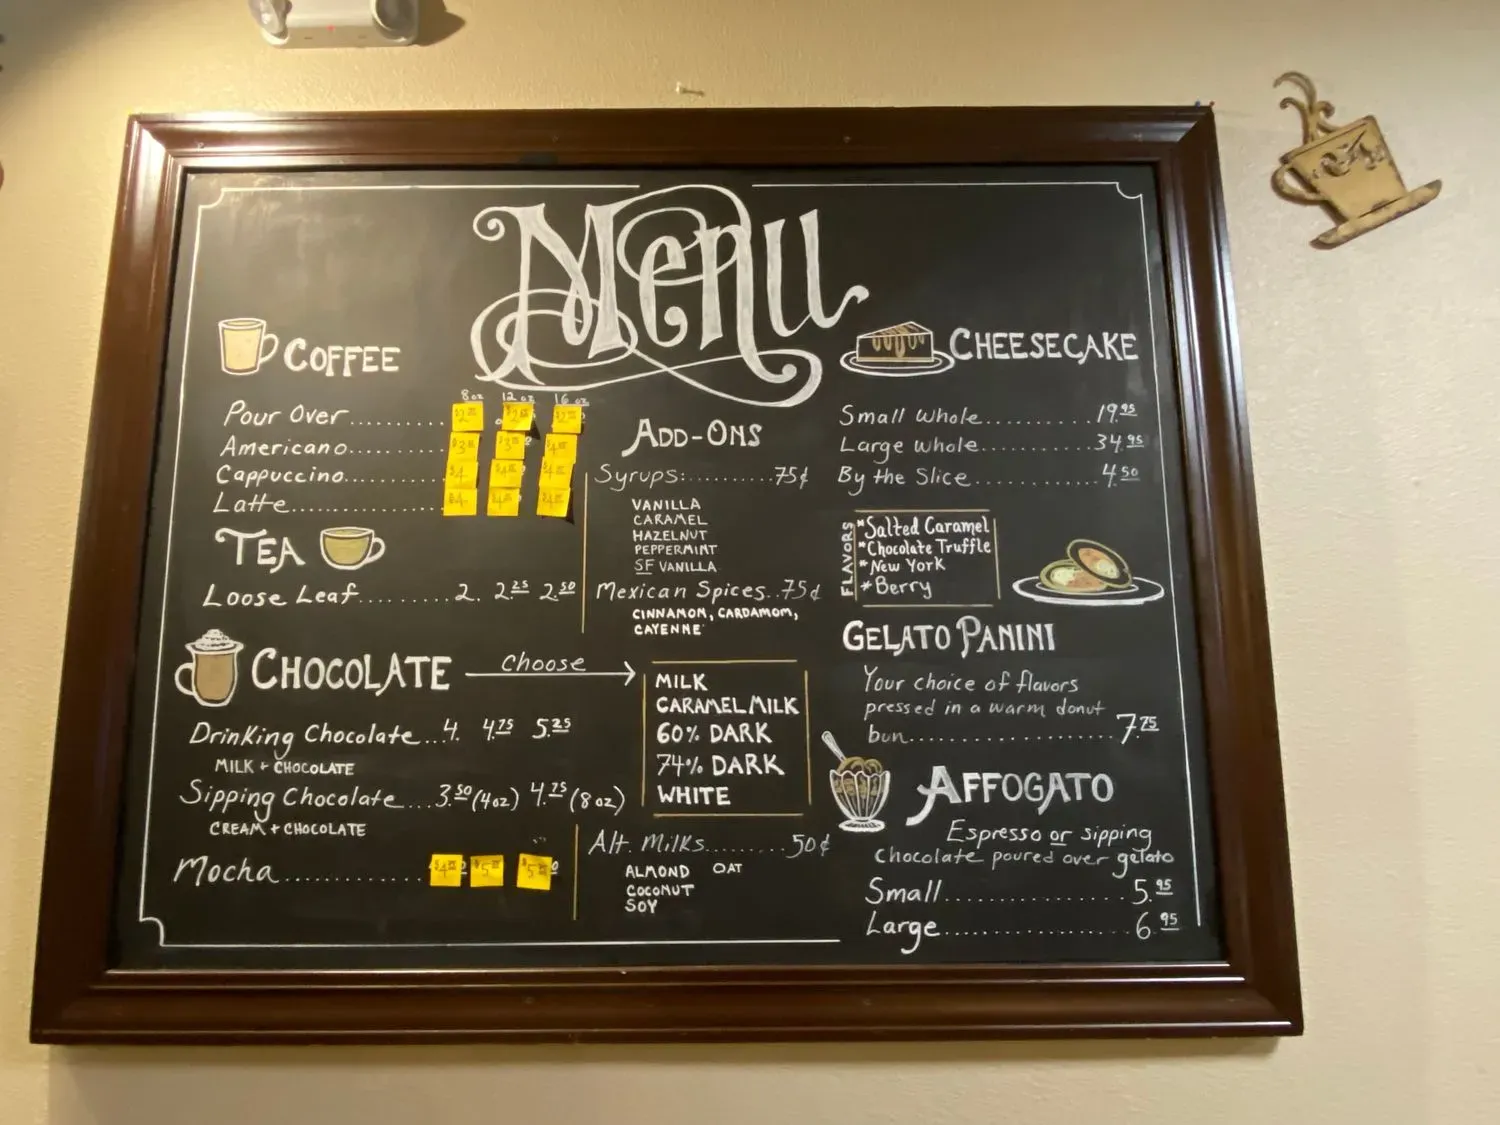 Menu
COFFEE
8 oz 12 oz 16 oz
Pour Over
Americano
Cappuccino
Latte
TEA
Loose Leaf 2. 2.25 2.50
CHOCOLATE choose
MILK
CARAMEL MILK
60% DARK
74% DARK
WHITE
Drinking Chocolate 4. 4.75 5.25
MILK + CHOCOLATE
Sipping Chocolate 3.50 (4oz) 4.75 (8 oz)
CREAM + CHOCOLATE
Mocha
ADD-ONS
Syrups: 75¢
VANILLA
CARAMEL
HAZELNUT
PEPPERMINT
SF VANILLA
Mexican Spices 75¢
CINNAMOM, CARDAMOM,
CAYENNE
Alt. Milks 50¢
ALMOND OAT
COCONUT
SOY
CHEESECAKE
Small Whole 19.95
Large Whole 34.95
By the Slice 4.50
FLAVORS
*Salted Caramel
*Chocolate Truffle
*New York
*Berry
GELATO PANINI
Your choice of flavors
pressed in a warm donut
bun 7.75
AFFOGATO
Espresso or sipping
Chocolate poured over gelato
Small 5.95
Large 6.95